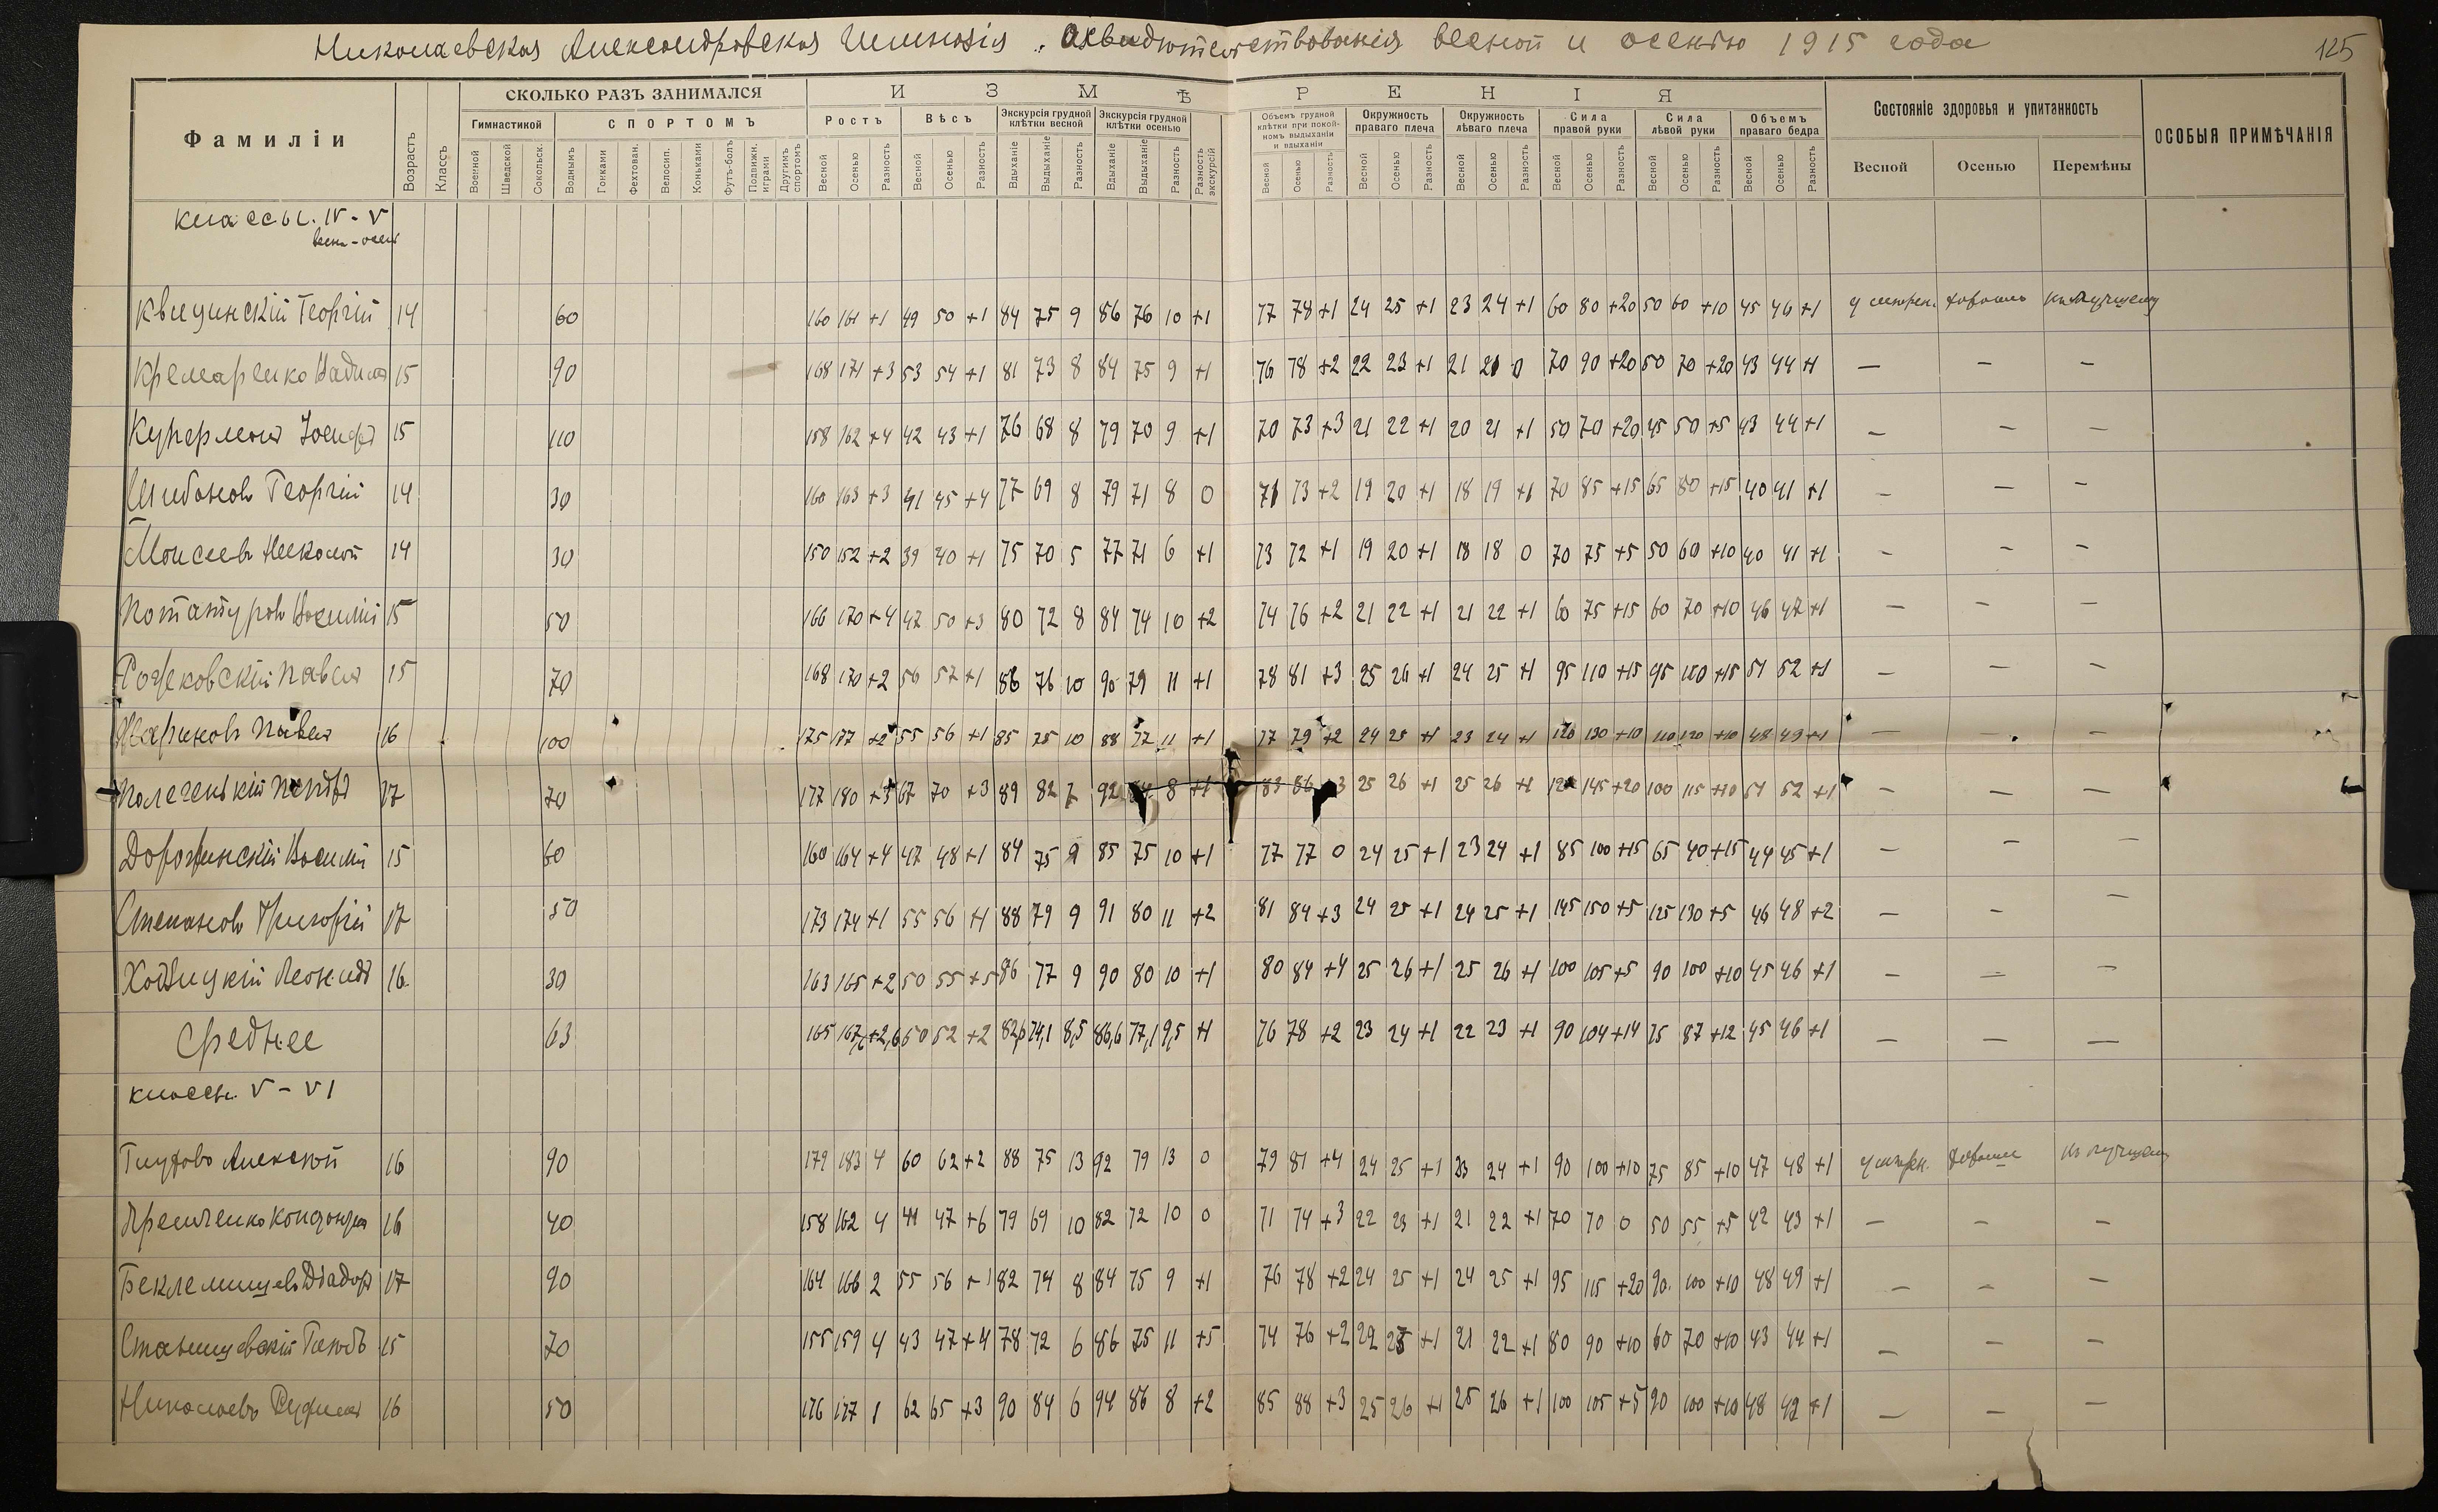 Николаевская Александровская Гимназія. Освидѣтельствованія весной и осенью 1915 года
125
Фамиліи Возрастъ Классъ СКОЛЬКО РАЗЪ ЗАНИМАЛСЯ ИЗМѢРЕНІЯ Состояніе здоровья и упитанность ОСОБЫЯ ПРИМѢЧАНІЯ
Гимнастикой СПОРТОМЪ Ростъ Вѣсъ Экскурсія грудной клѣтки весной Экскурсія грудной клѣтки осенью Разность экскурсій Объемъ грудной клѣтки при покойномъ выдыханіи и вдыханіи Окружность праваго плеча Окружность лѣваго плеча Сила правой руки Сила лѣвой руки Объемъ праваго бедра
Военной Шведской Сокольск. Воднымъ Гонками Фехтован. Велосип. Коньками Футъ-болъ Подвижн. играми Другимъ спортомъ Весной Осенью Разность Весной Осенью Разность Вдыханіе Выдыханіе Разность Вдыханіе Выдыханіе Разность Весной Осенью Разность Весной Осенью Разность Весной Осенью Разность Весной Осенью Разность Весной Осенью Разность Весной Осенью Разность Весной Осенью Перемѣны
классы. IV - V
весн - осен
Квицинскій Георгій 14 60 160 161 +1 49 50 +1 84 75 9 86 76 10 +1 77 78 +1 24 25 +1 23 24 +1 60 80 +20 50 60 +10 45 46 +1 умѣрен. хорошо къ лучшему
Вадимъ 15 90 168 171 +3 53 54 +1 81 73 8 84 75 9 +1 76 78 +2 22 23 +1 21 21 0 70 90 +20 50 70 +20 43 44 +1 — — —
Куперманъ Іосифъ 15 110 158 162 +4 42 43 +1 76 68 8 79 70 9 +1 70 73 +3 21 22 +1 20 21 +1 50 70 +20 45 50 +5 43 44 +1 — — —
Шибановъ Георгій 14 30 160 163 +3 41 45 +4 77 69 8 79 71 8 0 71 73 +2 19 20 +1 18 19 +1 70 85 +15 65 80 +15 40 41 +1 — — —
Моисеевъ Николай 14 30 150 152 +2 39 40 +1 75 70 5 77 71 6 +1 73 72 +1 19 20 +1 18 18 0 70 75 +5 50 60 +10 40 41 +1 — — —
Потатуровъ Василій 15 50 166 170 +4 47 50 +3 80 72 8 84 74 10 +2 74 76 +2 21 22 +1 21 22 +1 60 75 +15 60 70 +10 46 47 +1 — — —
Павелъ 15 70 168 170 +2 56 57 +1 86 76 10 90 79 11 +1 78 81 +3 25 26 +1 24 25 +1 95 110 +15 95 110 +15 51 52 +1 — — —
Павелъ 16 100 175 177 +2 55 56 +1 85 75 10 88 77 11 +1 77 79 +2 24 25 +1 23 24 +1 120 130 +10 110 120 +10 48 49 +1 — — —
17 70 177 180 +3 67 70 +3 89 82 7 92 84 8 +1 83 86 +3 25 26 +1 25 26 +1 145 +20 100 115 +10 51 52 +1 — — —
Дорожинскій Василій 15 60 160 164 +4 47 48 +1 84 75 9 85 75 10 +1 77 77 0 24 25 +1 23 24 +1 85 100 +15 65 +15 44 45 +1 — — —
Степановъ Григорій 17 50 173 174 +1 55 56 +1 88 79 9 91 80 11 +2 81 84 +3 24 25 +1 24 25 +1 145 150 +5 125 130 +5 46 48 +2 — — —
Леонидъ 16 30 163 165 +2 50 55 +5 86 77 9 90 80 10 +1 80 84 +4 25 26 +1 25 26 +1 100 105 +5 90 100 +10 45 46 +1 — — —
Среднее 63 165 167,6 +2,6 50 52 +2 82,6 74,1 8,5 86,6 77,1 9,5 +1 76 78 +2 23 24 +1 22 23 +1 90 104 +14 75 87 +12 45 46 +1 — — —
классы. V - VI
Алексѣй 16 90 179 183 4 60 62 +2 88 75 13 92 79 13 0 79 81 +4 24 25 +1 23 24 +1 90 100 +10 75 85 +10 47 48 +1 умѣрен. хорошо къ лучшему
16 40 158 162 4 41 47 +6 79 69 10 82 72 10 0 71 74 +3 22 23 +1 21 22 +1 70 70 0 50 55 +5 42 43 +1 — — —
Беклемишевъ Ѳіадоръ 17 90 164 166 2 55 56 +1 82 74 8 84 75 9 +1 76 78 +2 24 25 +1 24 25 +1 95 115 +20 90 100 +10 48 49 +1 — — —
15 70 155 159 4 43 47 +4 78 72 6 86 75 11 +5 74 76 +2 +1 21 22 +1 80 90 +10 60 70 +10 43 44 +1 — — —
Николаевъ 16 50 176 177 1 62 65 +3 90 84 6 94 86 8 +2 85 88 +3 25 26 +1 25 26 +1 100 105 +5 90 100 +10 48 49 +1 — — —